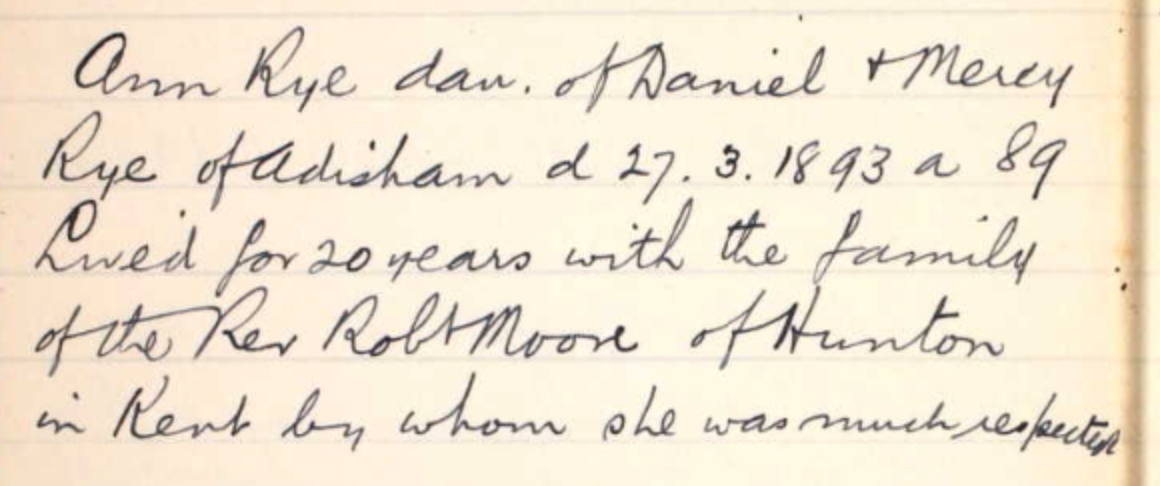 Ann Rye dau. of Daniel & Mercy
Rye of Adisham d 27.3.1893 a 89
Lived for 20 years with the family
of the Rev Robt Moore of Hunton
in Kent by whom she was much respected